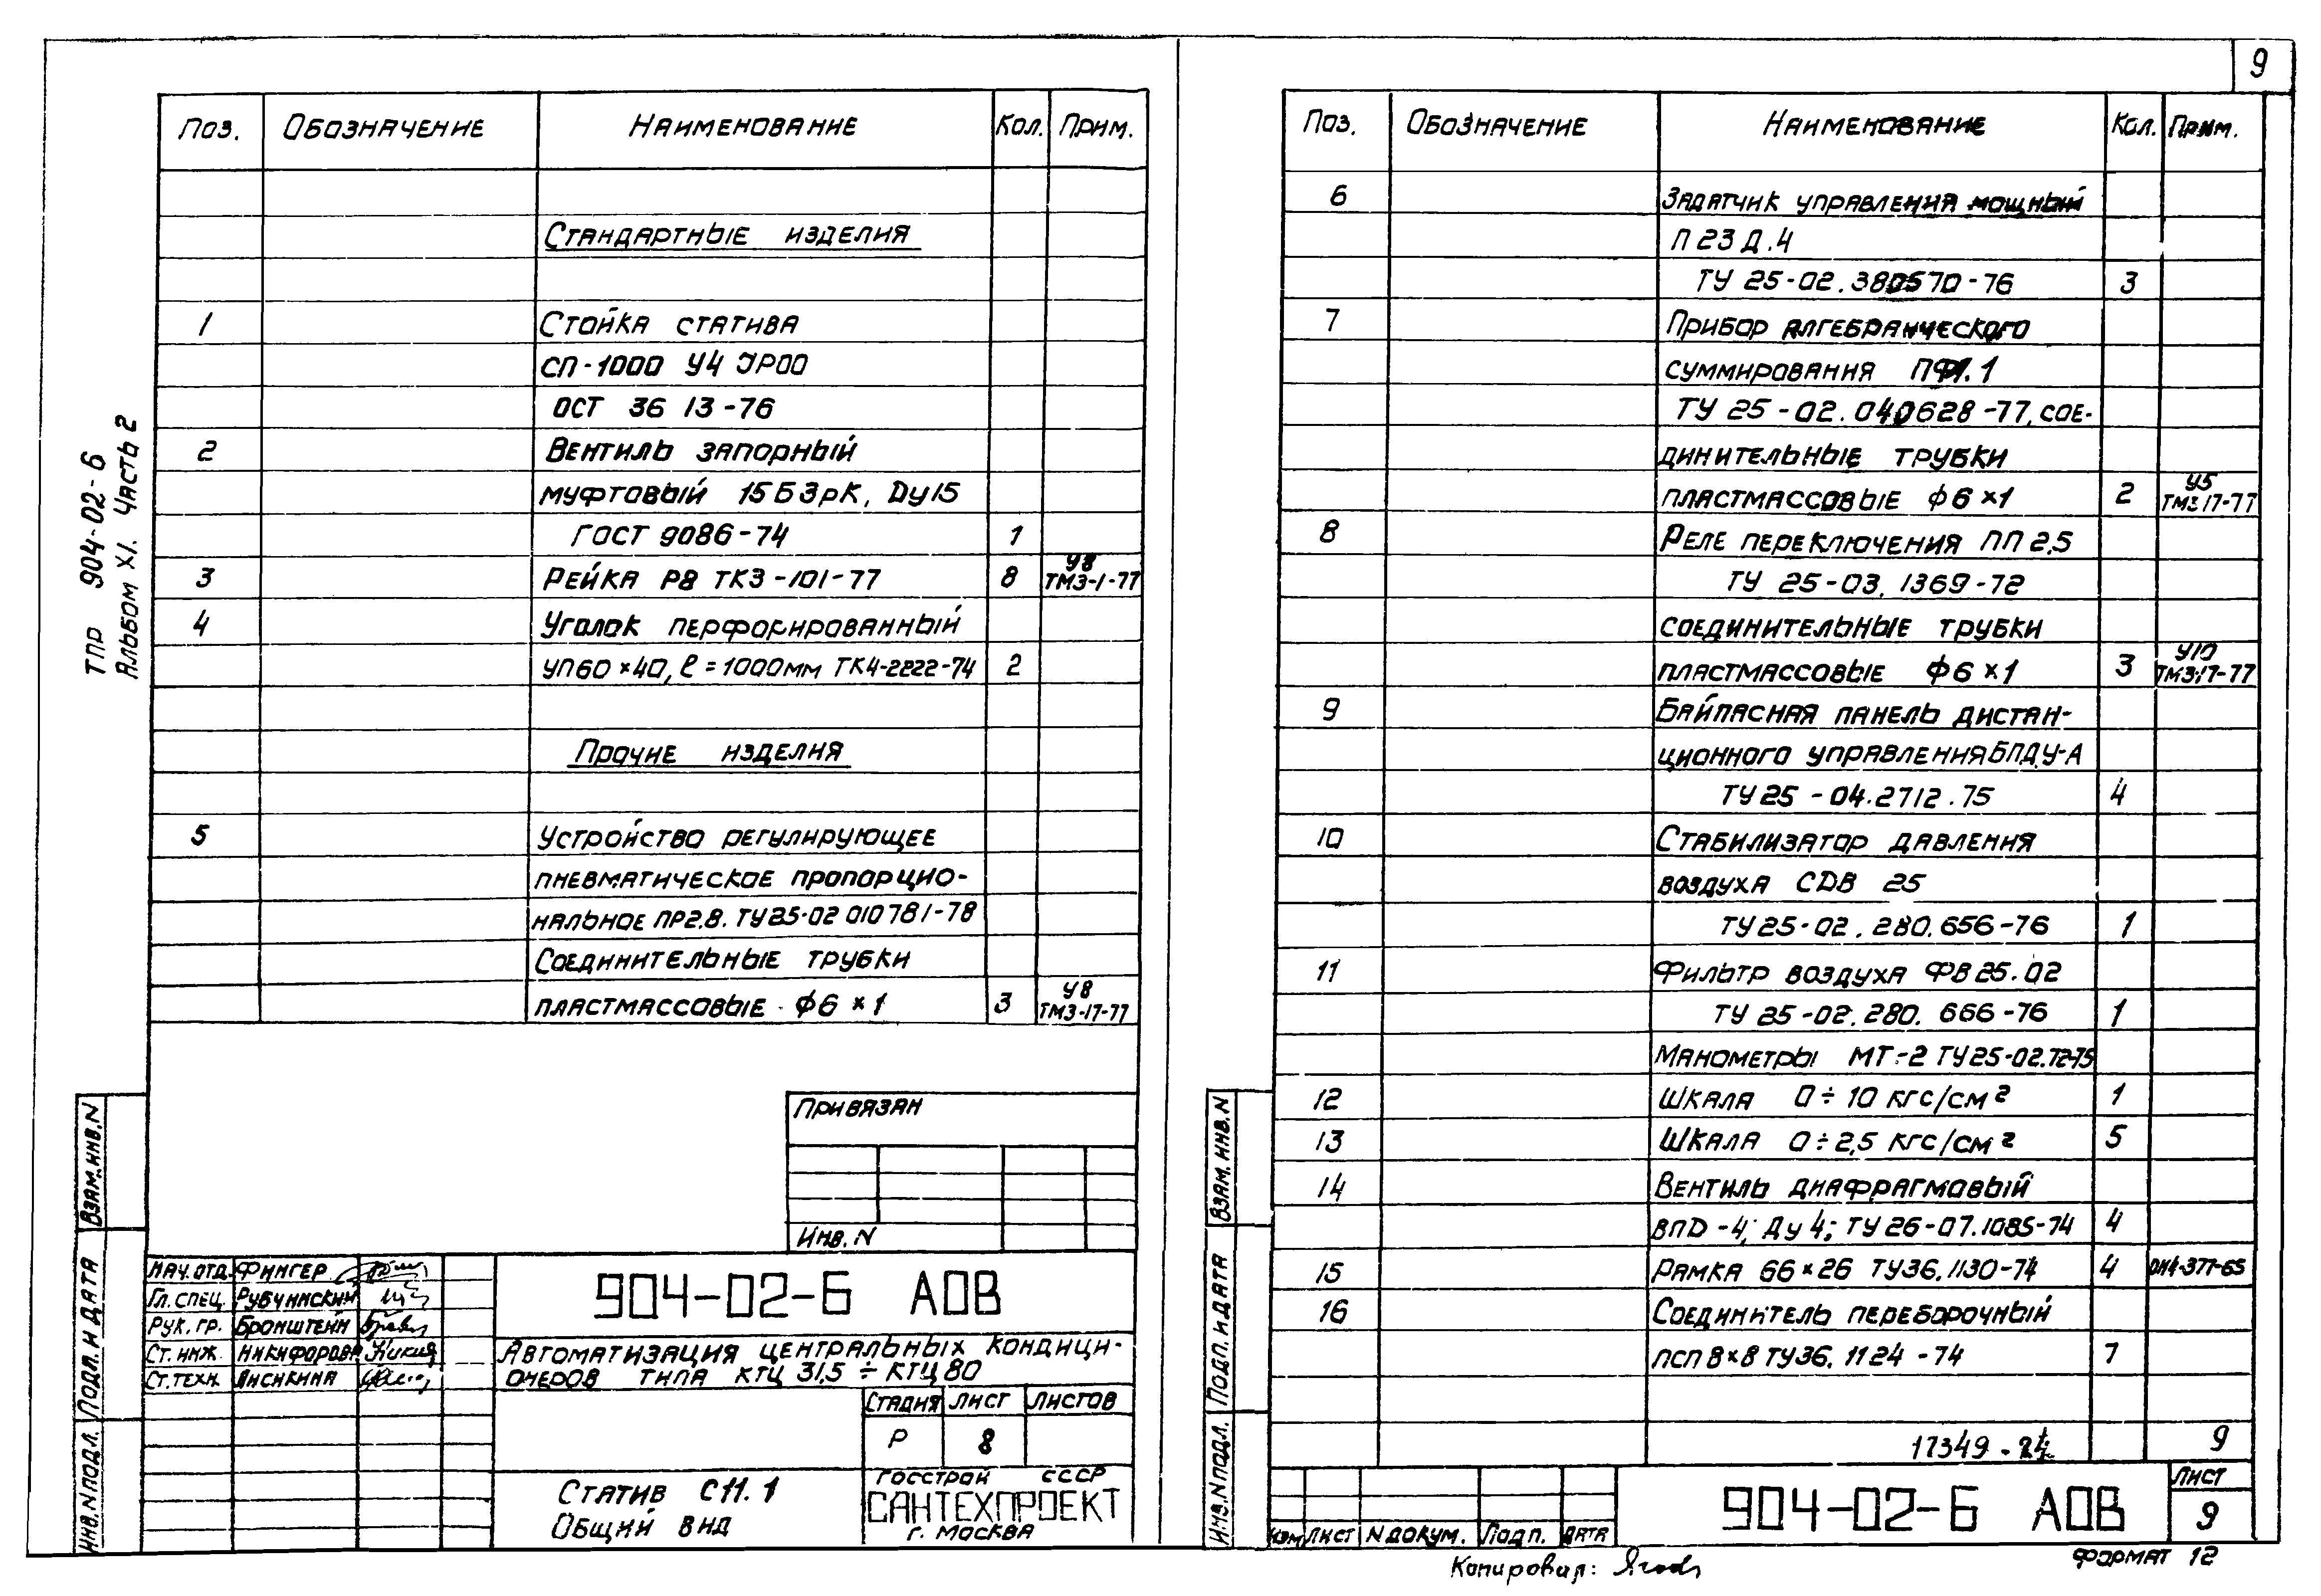 9
ТПР 904-02-6
Альбом XI. Часть 2
Поз. Обозначение Наименование Кол. Прим.
Стандартные изделия
1 Стойка статива
СП-1000 У4 УР00
ОСТ 36 13-76
2 Вентиль запорный
муфтовый 15Б3рК, Dу15
ГОСТ 9086-74 1
3 Рейка Р8 ТК3-101-77 8 У8 ТМ3-1-77
4 Уголок перфорированный
УП60×40, ℓ=1000мм ТК4-2222-74 2
Прочие изделия
5 Устройство регулирующее
пневматическое пропорцио-
нальное ПР2.8. ТУ25-02 010781-78
Соединительные трубки
пластмассовые ф6×1 3 У8 ТМ3-17-77
Привязан
Инв. N
Взам. инв. N
Подл. и дата
Инв. N подл.
Нач. отд. Фингер
Гл. спец. Рубчинский
Рук. гр. Бронштейн
Ст. инж. Никифорова
Ст. техн. Лисикина
904-02-6 АОВ
Автоматизация центральных кондици-
онеров типа КТЦ 31,5 ÷ КТЦ 80
Стадия Лист Листов
Р 8
Статив С11.1
Общий вид
Госстрой СССР
САНТЕХПРОЕКТ
г. Москва
Поз. Обозначение Наименование Кол. Прим.
6 Задатчик управления мощный
П23Д.4
ТУ 25-02.380570-76 3
7 Прибор алгебраического
суммирования ПФ1.1
ТУ 25-02.040628-77, сое-
динительные трубки
пластмассовые ф6×1 2 У5 ТМ3-17-77
8 Реле переключения ПП 2.5
ТУ 25-03.1369-72
соединительные трубки
пластмассовые ф6×1 3 У10 ТМ3-17-77
9 Байпасная панель дистан-
ционного управления БПДУ-А
ТУ25-04.2712.75 4
10 Стабилизатор давления
воздуха СDВ 25
ТУ25-02.280.656-76 1
11 Фильтр воздуха ФВ25.02
ТУ 25-02.280.666-76 1
Манометры МТ-2 ТУ25-02.72-75
12 Шкала 0÷10 кгс/см² 1
13 Шкала 0÷2,5 кгс/см² 5
14 Вентиль диафрагмовый
ВПD-4; Ду 4; ТУ 26-07.1085-74 4
15 Рамка 66×26 ТУ36.1130-74 4
16 Соединитель переборочный
ПСП 8×8 ТУ36.1124-74 7
17349-24 9
Взам. инв. N
Подп. и дата
Инв. N подл.
Изм Лист N докум. Подп. Дата
904-02-6 АОВ
Лист
9
Копировал:
Формат 12